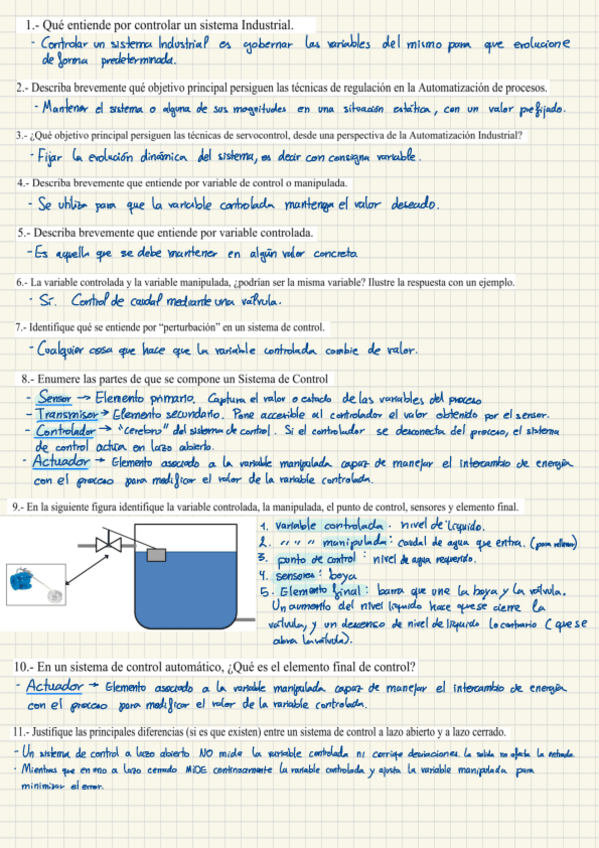 1.- Qué entiende por controlar un sistema Industrial.
- Controlar un sistema Industrial es gobernar las variables del mismo para que evolucione
de forma predeterminada.
2.- Describa brevemente qué objetivo principal persiguen las técnicas de regulación en la Automatización de procesos.
- Mantener el sistema o alguna de sus magnitudes en una situación estática, con un valor prefijado.
3.- ¿Qué objetivo principal persiguen las técnicas de servocontrol, desde una perspectiva de la Automatización Industrial?
- Fijar la evolución dinámica del sistema, es decir con consigna variable.
4.- Describa brevemente que entiende por variable de control o manipulada.
- Se utiliza para que la variable controlada mantenga el valor deseado.
5.- Describa brevemente que entiende por variable controlada.
- Es aquella que se debe mantener en algún valor concreto
6.- La variable controlada y la variable manipulada, ¿podrían ser la misma variable? Ilustre la respuesta con un ejemplo.
- Sí. Control de caudal mediante una válvula.
7.- Identifique qué se entiende por “perturbación” en un sistema de control.
- Cualquier cosa que hace que la variable controlada cambie de valor.
8.- Enumere las partes de que se compone un Sistema de Control
- Sensor → Elemento primario. Captura el valor o estado de las variables del proceso
- Transmisor → Elemento secundario. Pone accesible al controlador el valor obtenido por el sensor.
- Controlador → "cerebro" del sistema de control. Si el controlador se desconecta del proceso, el sistema
de control actúa en lazo abierto.
- Actuador → Elemento asociado a la variable manipulada capaz de manejar el intercambio de energía
con el proceso para modificar el valor de la variable controlada.
9.- En la siguiente figura identifique la variable controlada, la manipulada, el punto de control, sensores y elemento final.
1. variable controlada. nivel de líquido.
2. " " " manipulada: caudal de agua que entra. (para rellenar)
3. punto de control: nivel de agua requerido.
4. sensores: boya
5. Elemento final: barra que une la boya y la válvula.
Un aumento del nivel líquido hace que se cierre la
válvula, y un descenso de nivel de líquido lo contrario (que se
abra la válvula).
10.- En un sistema de control automático, ¿Qué es el elemento final de control?
- Actuador → Elemento asociado a la variable manipulada capaz de manejar el intercambio de energía
con el proceso para modificar el valor de la variable controlada.
11.- Justifique las principales diferencias (si es que existen) entre un sistema de control a lazo abierto y a lazo cerrado.
- Un sistema de control a lazo abierto NO mide la variable controlada ni corrige desviaciones. La salida no afecta la entrada.
- Mientras que en uno a lazo cerrado MIDE continuamente la variable controlada y ajusta la variable manipulada para
minimizar el error.